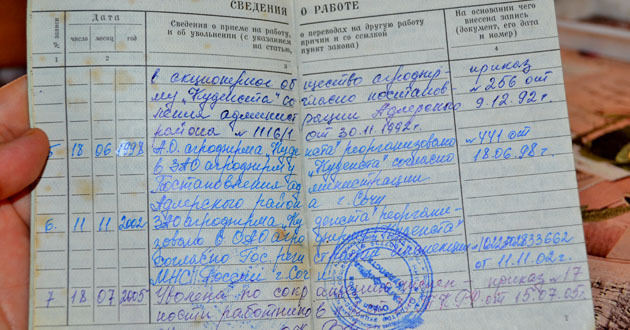 СВЕДЕНИЯ О РАБОТЕ
№ записи
Дата
число месяц год
Сведения о приеме на работу, переводах на другую работу
и об увольнении (с указанием причин и со ссылкой
на статью, пункт закона)
На основании чего
внесена запись
(документ, его дата
и номер)
1 2 3 4
в акционерное общество агрофир- приказ
му "Кудепста" согласно постанов № 256 от
ления администрации Адлерско 9.12.92г.
района №1116/1 от 30.11.1992г.
5 18 06 1998 А.О. агрофирма "Кудепста" реорганизовано №441 от
в ЗАО агрофирму "Кудепста" согласно 18.06.98г.
Постановления администрации
Адлерского района г. Сочи
6. 11 11 2002 ЗАО агрофирма "Кудепста" реоргани-
зовано в ОАО агрофирма "Кудепста"
согласно Гос. регистрации
МНС России г. Сочи от 11.11.02г.
7 18 07 2005 Уволена по сокращению приказ №17
ности работников РФ от 15.07.05г.